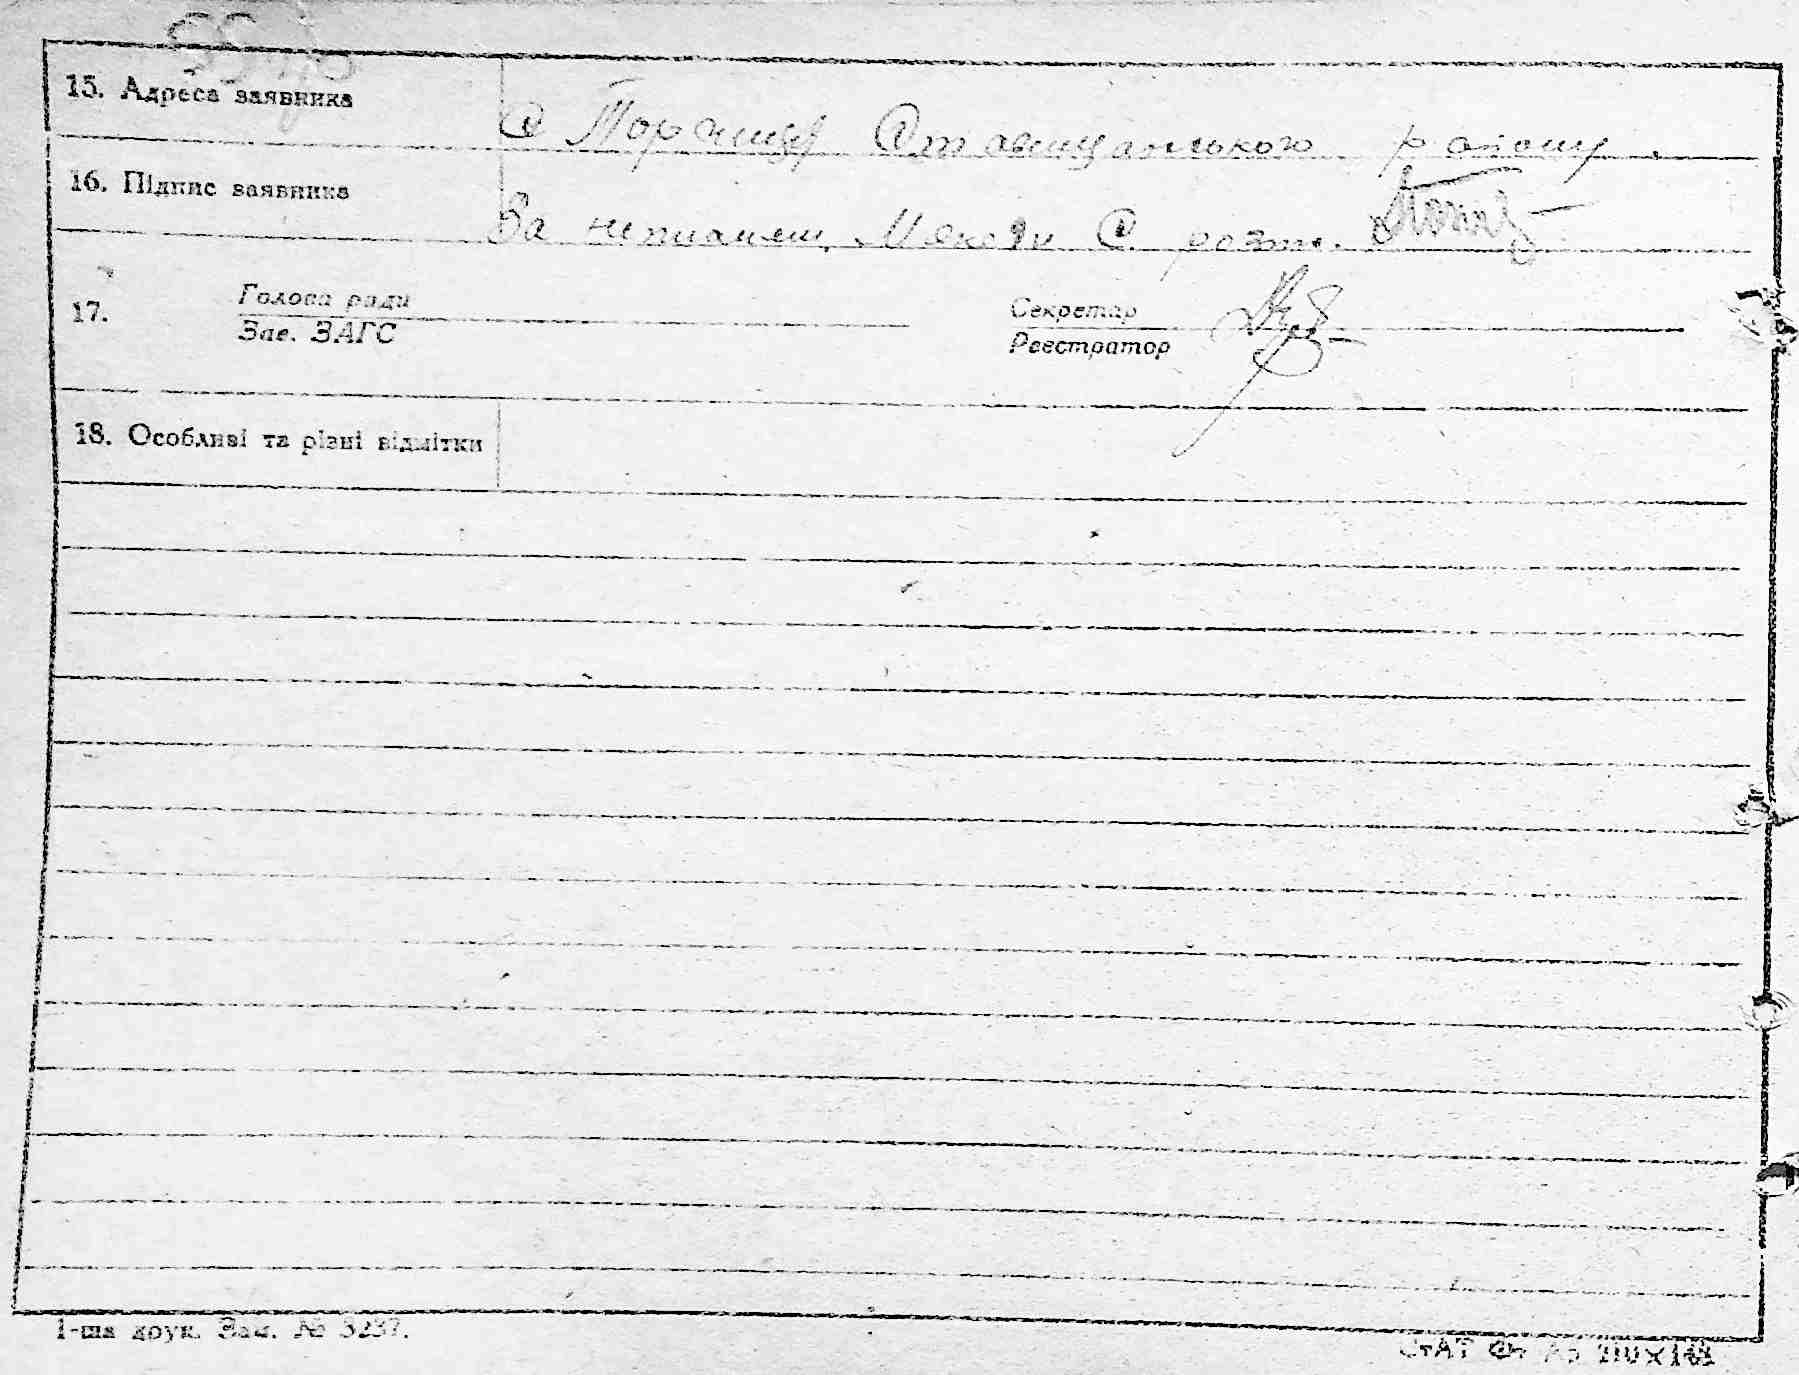 15. Адреса заявника
с Торчиця Ставищанського району.
16. Підпис заявника
За неписьмен. С. розп.
17. Голова ради Секретар
Зав. ЗАГС Реєстратор
18. Особливі та різні відмітки
1-ша друк. Зам. № 3237.
СтАТ Ф А5 210×148